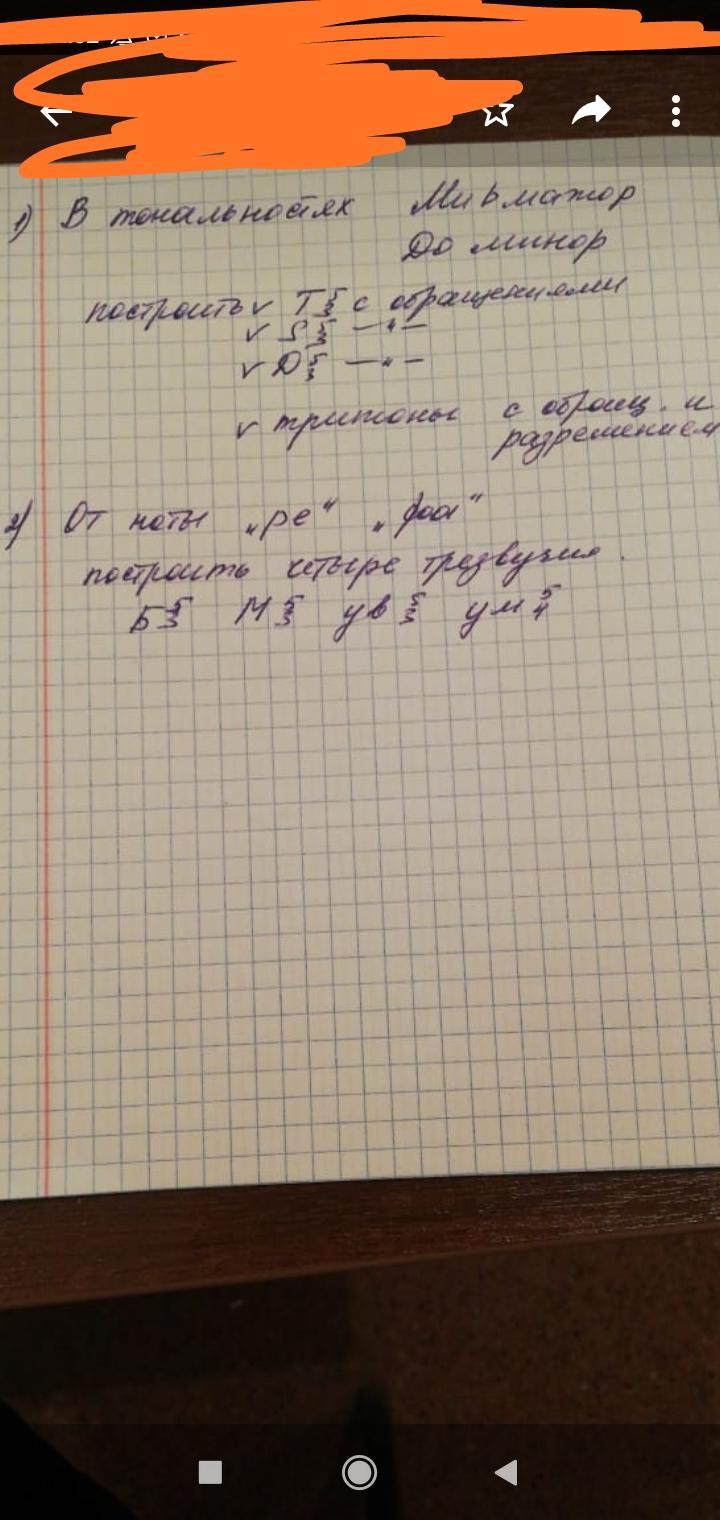 1) В тональностях Ми ь мажор
До минор
построить v T5/3 с обращениями
v S5/3 —"—
v D5/3 —"—
v тритоны с обращ. и
разрешением
2) От ноты "ре" "фа"
построить четыре трезвучия.
Б5/3 М5/3 ув5/3 ум5/4